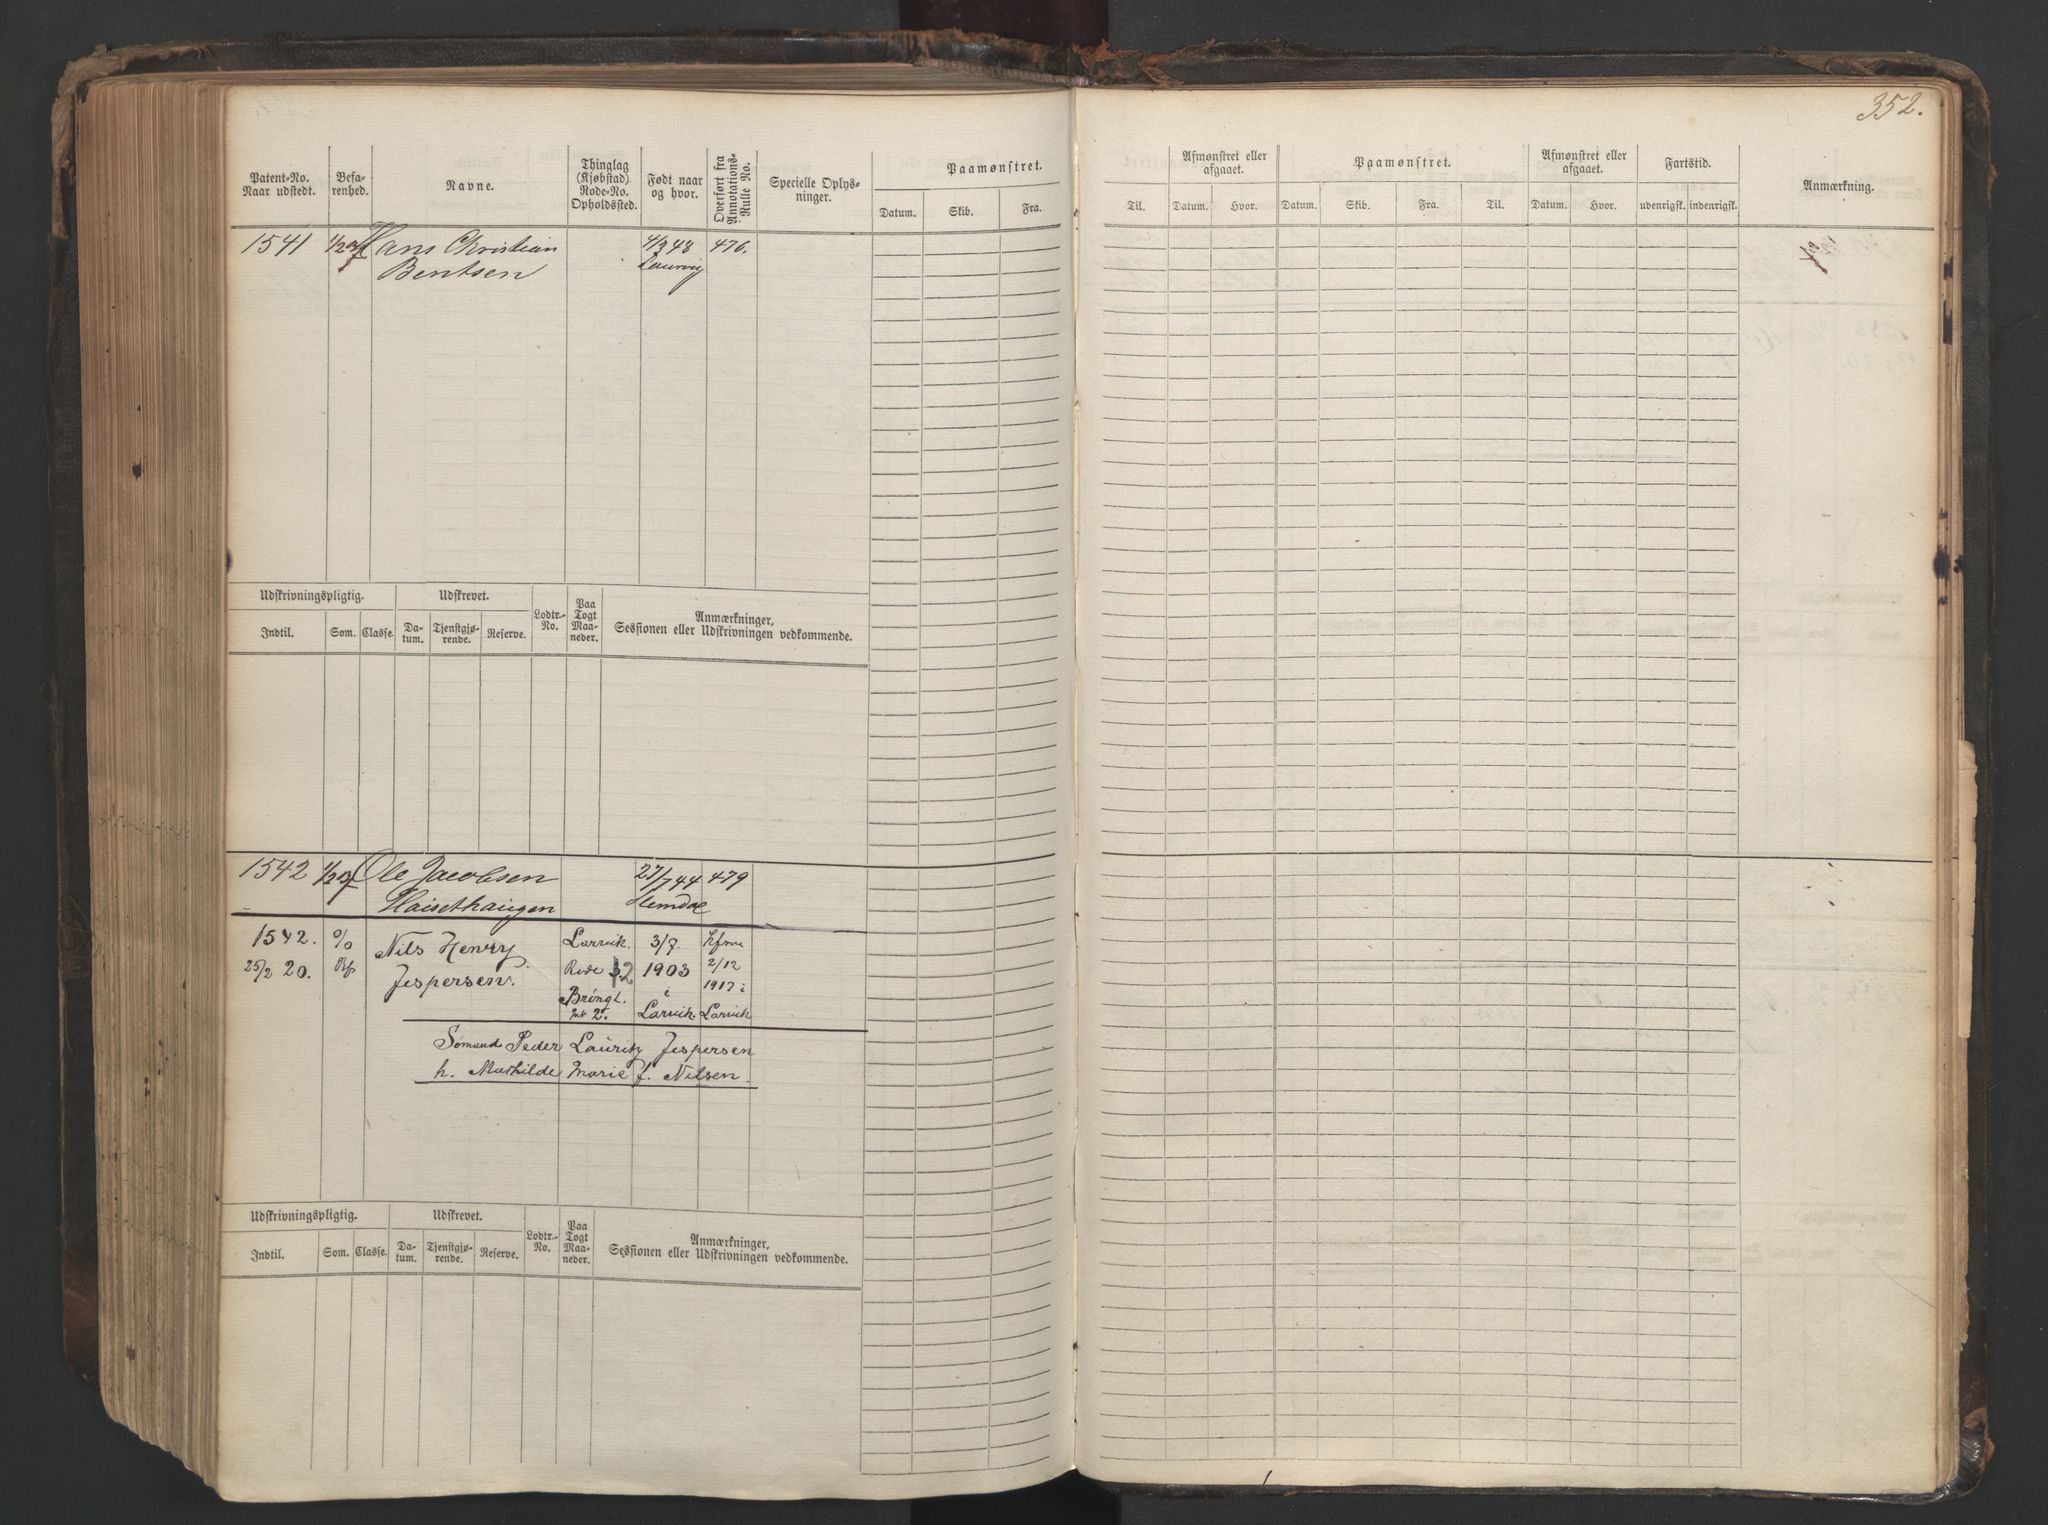 352.
Patent-No.
Naar udstedt.
Befa-
renhed.
Navne.
Thinglag
(Kjøbstad)
Rode-No.
Opholdssted.
Født naar
og hvor.
Overført fra
Annotations-
Rulle No.
Specielle Oplys-
ninger.
Paamønstret.
Datum. Skib. Fra.
Til.
Afmønstret eller
afgaaet.
Datum. Hvor.
Paamønstret.
Datum. Skib. Fra. Til.
Afmønstret eller
afgaaet.
Datum. Hvor.
Fartstid.
udenrigsk. indenrigsk.
Anmærkning.
1541 Hans Christian 4/3 48 476.
Bentsen Laurvig
Udskrivningspligtig. Udskrevet. Lodtr.-
No. Paa
Togt
Maa-
neder. Anmærkninger,
Sessionen eller Udskrivningen vedkommende.
Indtil. Som. Classe. Da-
tum. Tjenstgjø-
rende. Reserve.
1542 Ole Jacobsen 27/7 44 479
Haisethaugen
1542. Nils Henry Larvik. 3/7.
25/2 20. Jespersen. Rode 1903 2/12
i 1917 i
2. Larvik. Larvik
Sømand Peder Lauritz Jespersen
h. Mathilde Marie f. Nilsen.
Udskrivningspligtig. Udskrevet. Lodtr.-
No. Paa
Togt
Maa-
neder. Anmærkninger,
Sessionen eller Udskrivningen vedkommende.
Indtil. Som. Classe. Da-
tum. Tjenstgjø-
rende. Reserve.